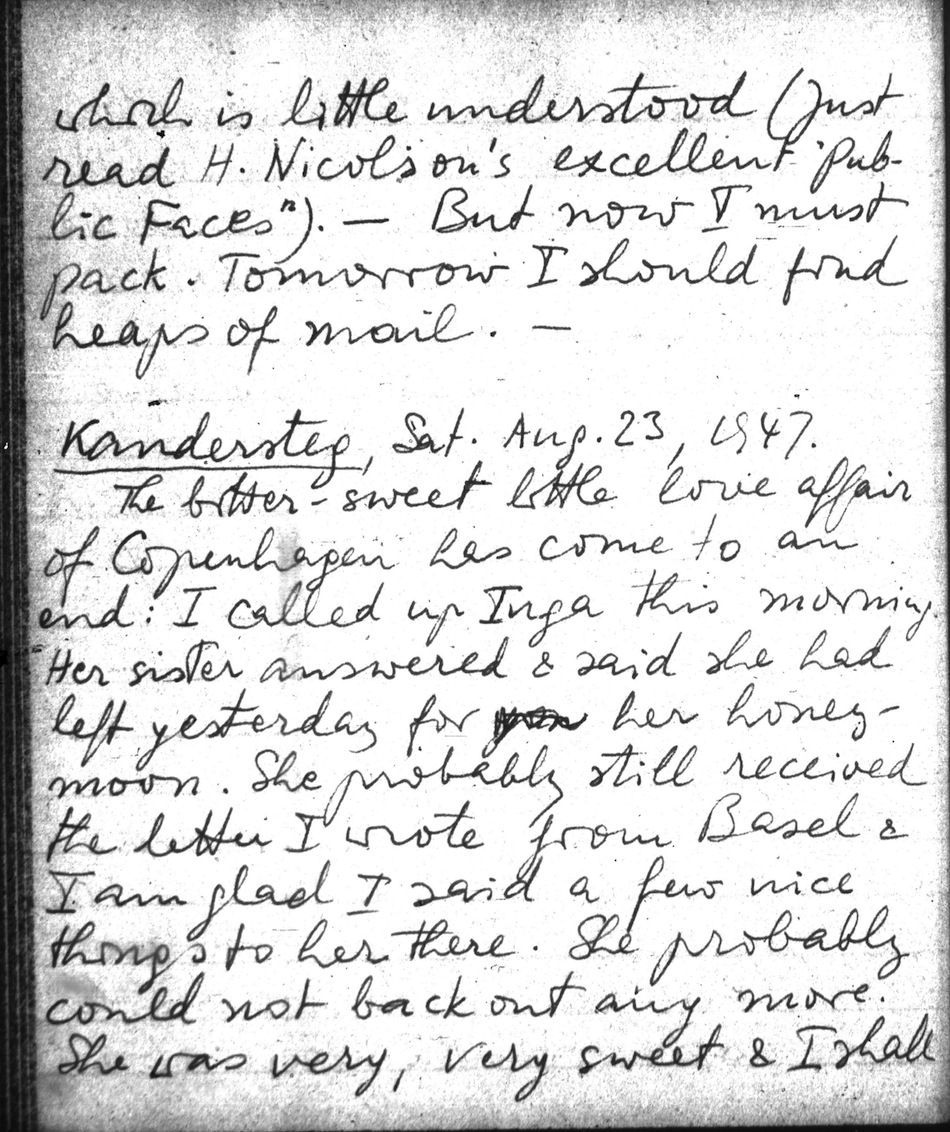 which is little understood (just
read H. Nicolson's excellent "Pub-
lic Faces"). — But now I must
pack. Tomorrow I should find
heaps of mail. —
Kandersteg, Sat. Aug. 23, 1947.
The bitter-sweet little love affair
of Copenhagen has come to an
end: I called up Inga this morning.
Her sister answered & said she had
left yesterday for her honey-
moon. She probably still received
the letter I wrote from Basel &
I am glad I said a few nice
things to her there. She probably
could not back out any more.
She was very, very sweet & I shall